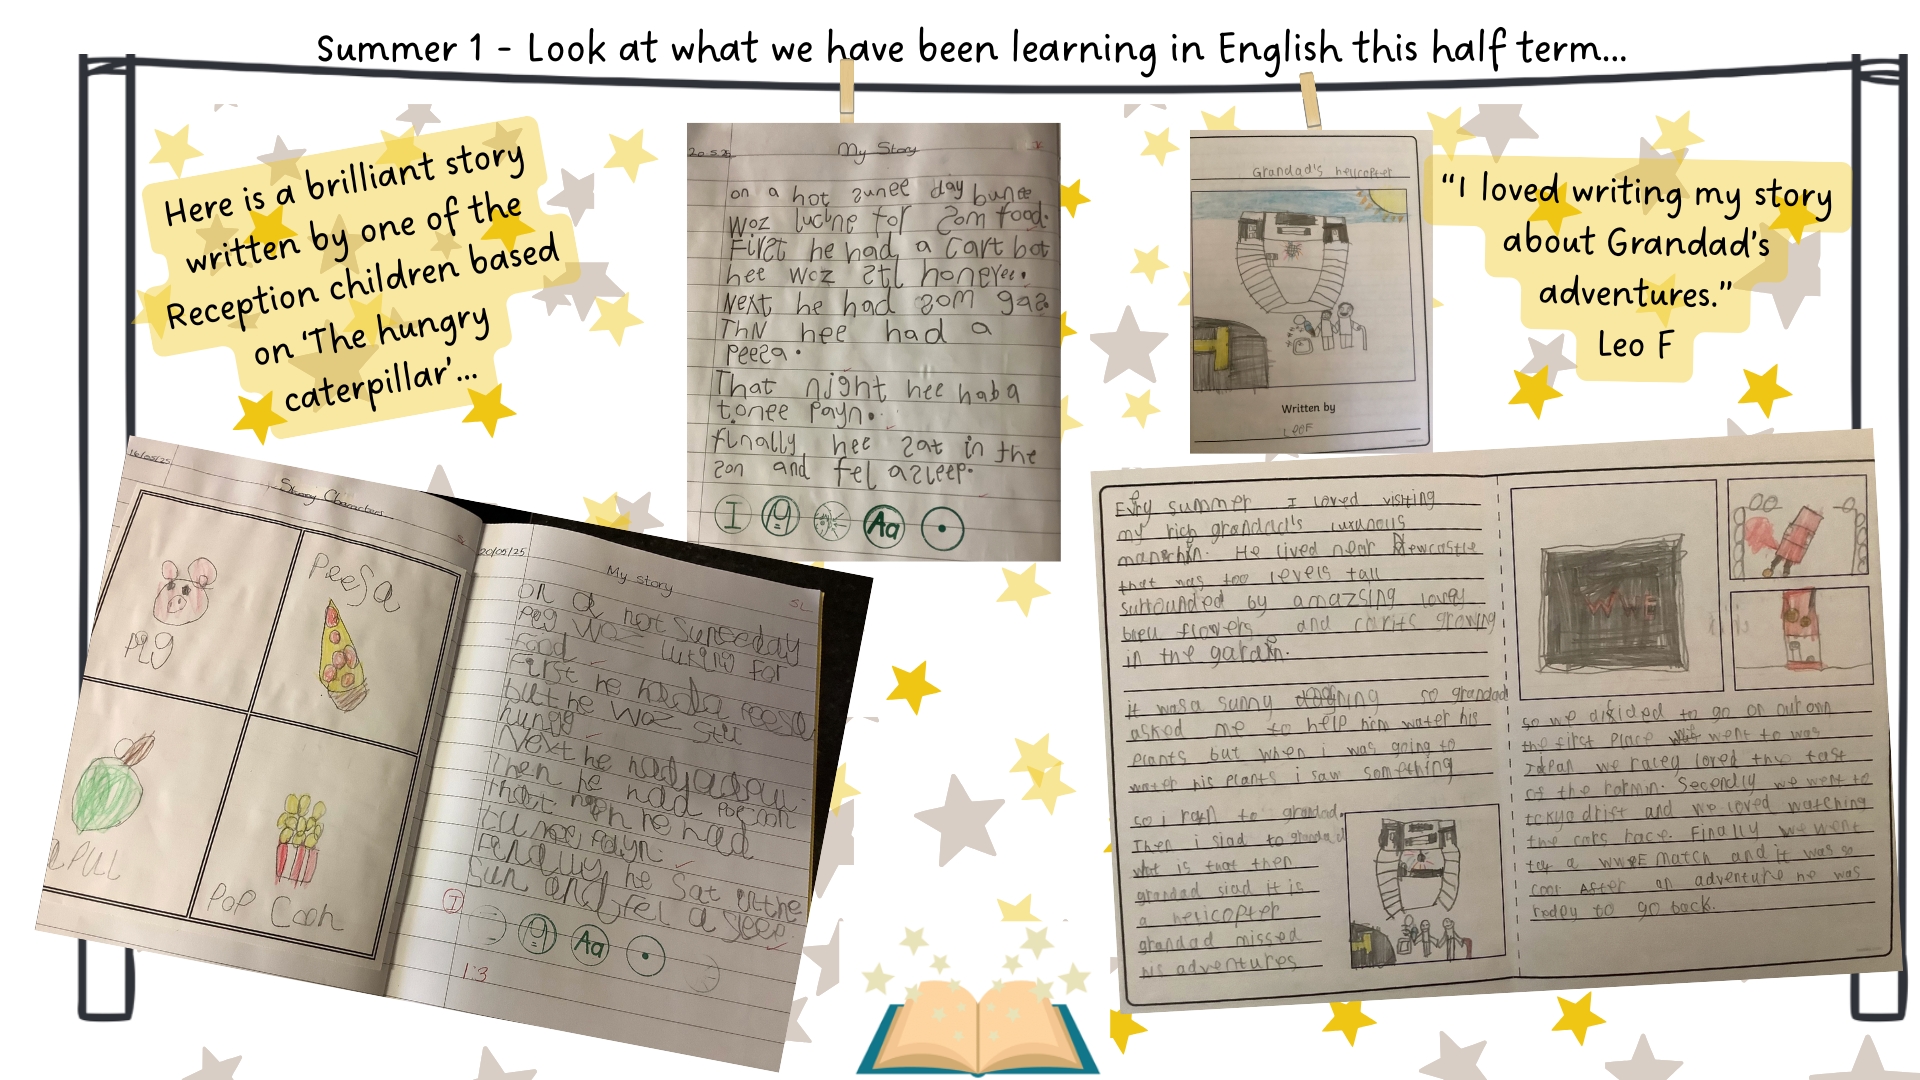 Summer 1 - Look at what we have been learning in English this half term...
Here is a brilliant story
written by one of the
Reception children based
on 'The hungry
caterpillar'...
20.5.25
My Story
on a hot sunee day bunee
woz lucine for som food.
First he had a cart bot
hee woz stl
Next he had som
ThN hee had a
Peesa.
That night hee had a
Payn.
finally hee sat in the
son and fel asleep.
I
Aa
Grandad's helicopter
Written by
Leo F
"I loved writing my story
about Grandad's
adventures."
Leo F
16/05/25
Story Characters
Pig
Peesa
APULL
Pop Cooh
20/05/25
My story
SL
on a hot sunee day
Peg woz luking for
food
First he had a peesa
but he woz stil
Next he had
Then he had
that he had
Payn.
Finally he sat in the
Sun and fel a sleep.
I
Aa
1:3
Evry summer I loved visiting
my rich grandad's luxurious
He lived near Newcastle
that was too levels tall
surrounded by amazsing lovely
flowers and growing
in the gardin.
it was a sunny so grandad
asked me to help him water his
plants but when i was going to
water his plants i saw something
so i ran to grandad.
Then i siad to grandad
what is that then
grandad siad it is
a helicopter
grandad missed
his adventures
WWE
so we dicided to go on our own
the first place went to was
Japan we loved the tast
of the Secendly we went to
tokyo drift and we loved watching
the cars race. Finally we went
to a WWE match and it was so
cool After an adventure he was
redey to go back.